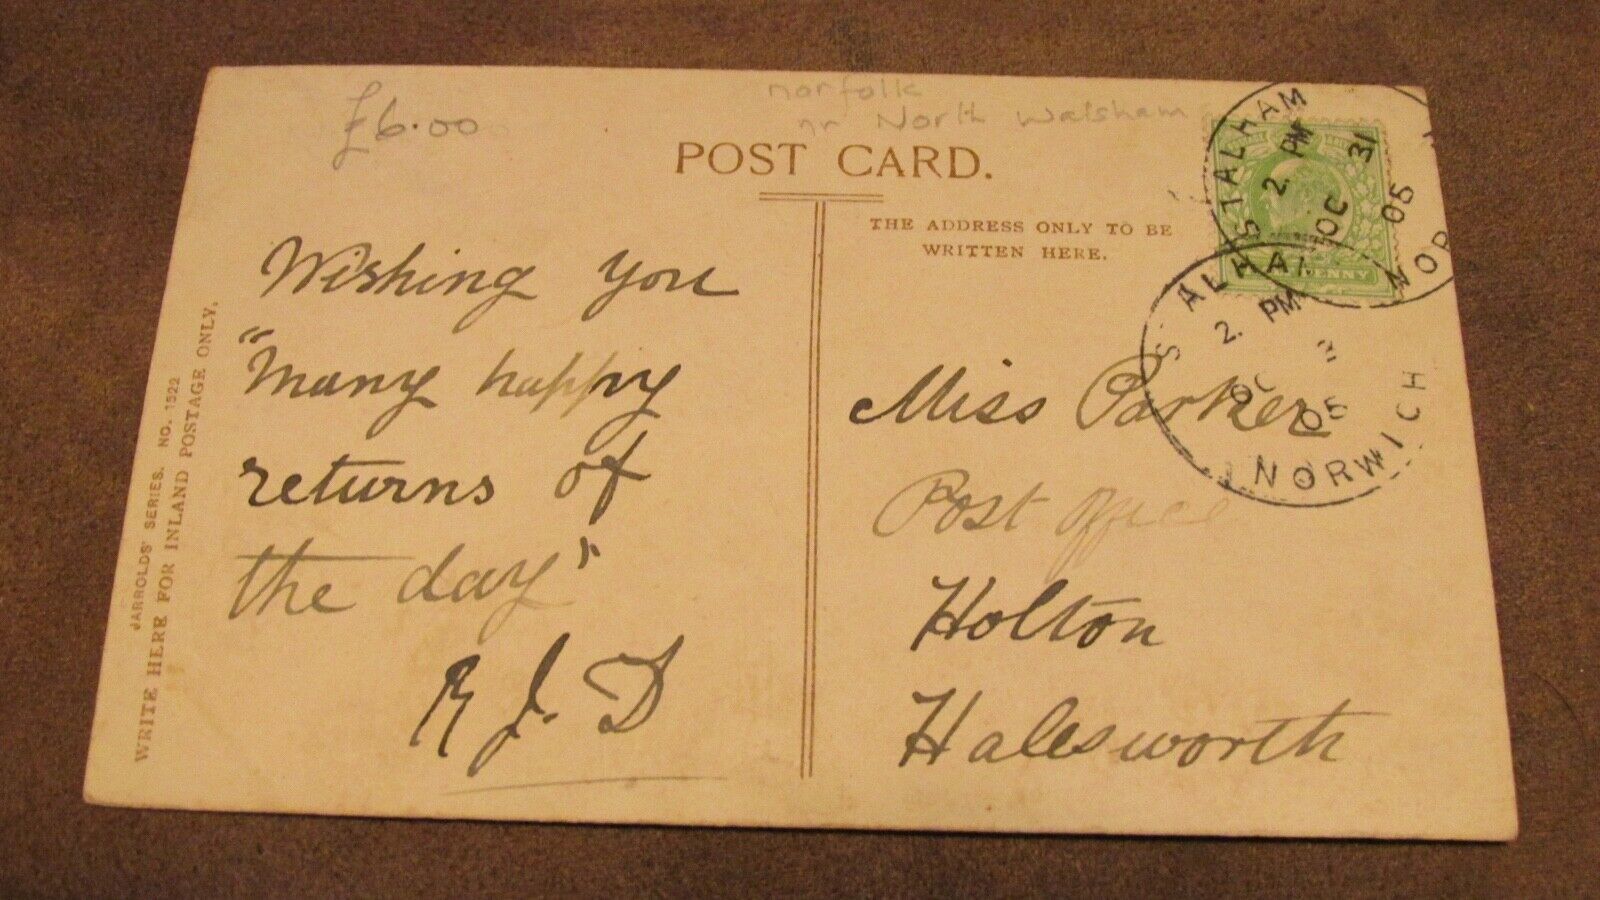 £6.00
norfolk
nr North Walsham
POST CARD.
THE ADDRESS ONLY TO BE
WRITTEN HERE.
JARROLDS' SERIES. NO. 1522
WRITE HERE FOR INLAND POSTAGE ONLY.
Wishing you
"Many happy
returns of
the day"
R J. D
Miss Parker
Post Office
Holton
Halesworth
STALHAM
2. PM
OC 31
05
NOR
PENNY
STALHAM
2. PM
OC 3
05
NORWICH